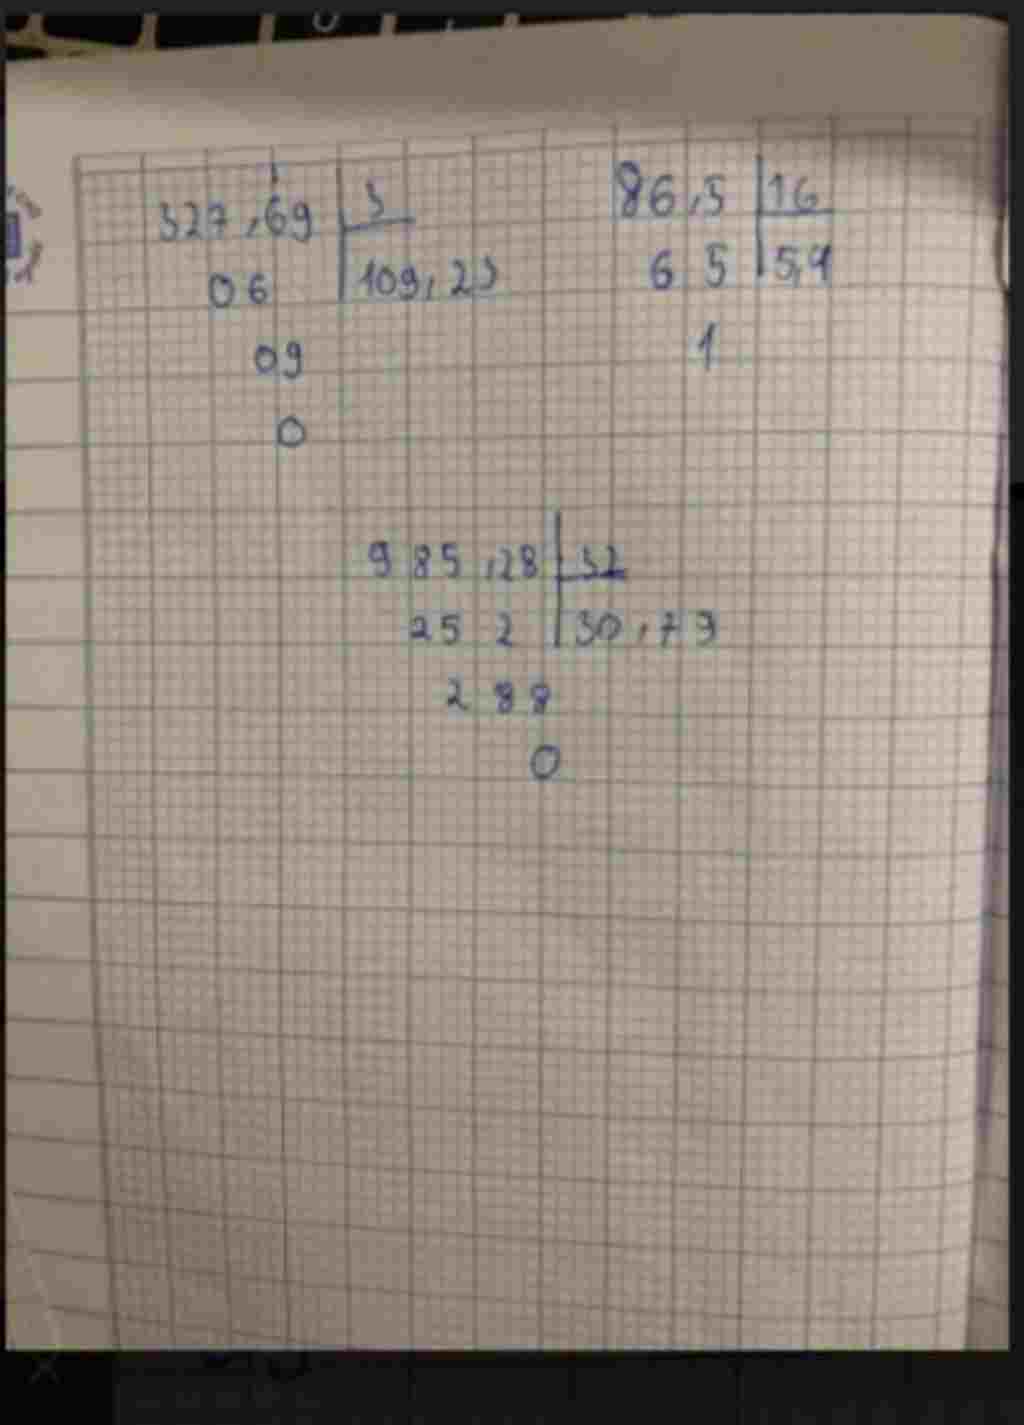 327,69 3
06 109,23
09
0
86,5 16
6 5 5,4
1
985,28 32
25 2 30,79
2 88
0